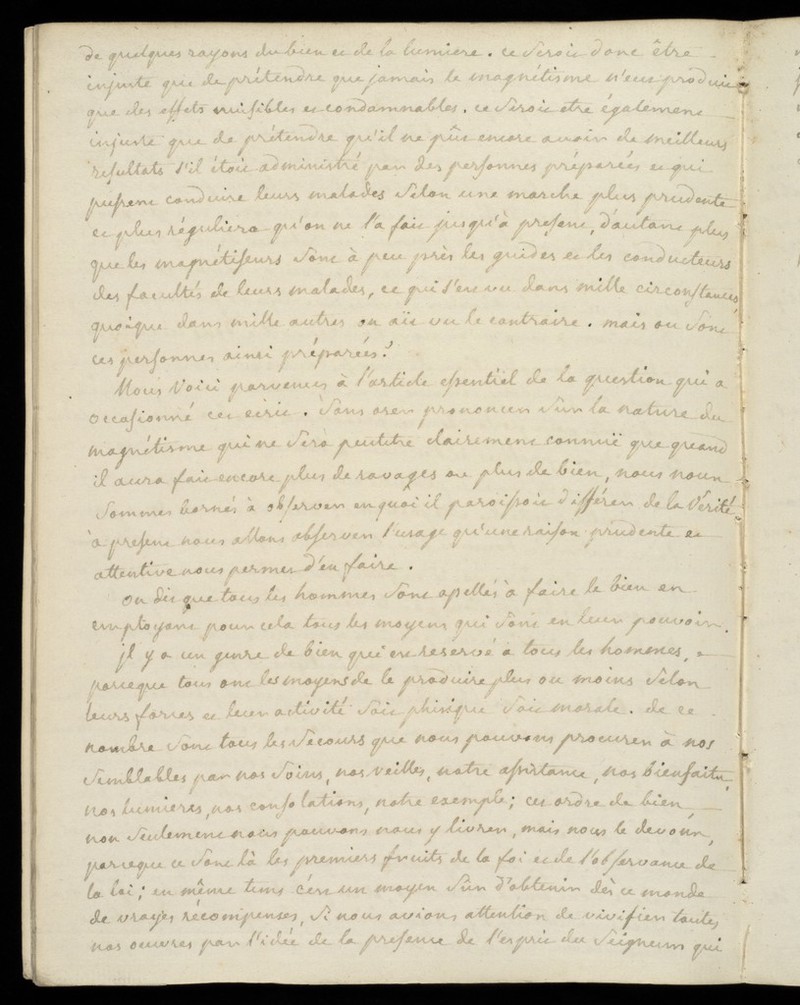 de quelques rayons du bien et de la lumiere. ce seroit donc être
injuste que de prétendre que jamais le magnétisme n'eut produit
que des effets nuisibles et condamnables. ce seroit etre également
injuste que de prétendre qu'il ne pût encore avoir de meilleurs
resultats s'il étoit administré par des personnes préparées et qui
pussent conduire leurs malades selon une marche plus prudente
et plus réguliere qu'on ne l'a fait jusqu'à present, d'autant plus
que les magnétiseurs sont à peu près les guides et les conducteurs
des facultés de leurs malades, ce qui s'est vu dans mille circonstances
quoique dans mille autres on ait vu le contraire. mais ou sont
ces personnes ainsi préparées?
Nous voici parvenus à l'article essentiel de la question qui a
occasionné cet écrit. sans oser prononcer sur la nature du
magnétisme qui ne sera peutetre clairement connuë que quand
il aura fait encore plus de ravages ou plus de bien, nous nous
sommes bornés à observer en quoi il paroissoit différer de la Vérité
à present nous allons observer l'usage qu'une raison prudente et
attentive nous permet d'en faire.
on dit que tous les hommes sont apellés à faire le bien en
employant pour cela tous les moyens qui sont en leur pouvoir.
il y a un genre de bien qui est reservé à tous les hommes,
parceque tous ont les moyens de le produire plus ou moins selon
leurs forces et leur activité soit phisique soit morale. de ce
nombre sont tous les secours que nous pouvons procurer à nos
semblables par nos soins, nos veilles, notre assistance, nos bienfaits,
nos lumieres, nos consolations, notre exemple; cet ordre de bien
non seulement nous pouvons nous y livrer, mais nous le devons,
parceque ce sont là les premiers fruits de la foi et de l'observance de
la loi; en même tems c'est un moyen sûr d'obtenir dès ce monde
de vrayes récompenses, si nous avions attention de vivifier toutes
nos oeuvres par l'idée de la presence de l'esprit du Seigneur qui